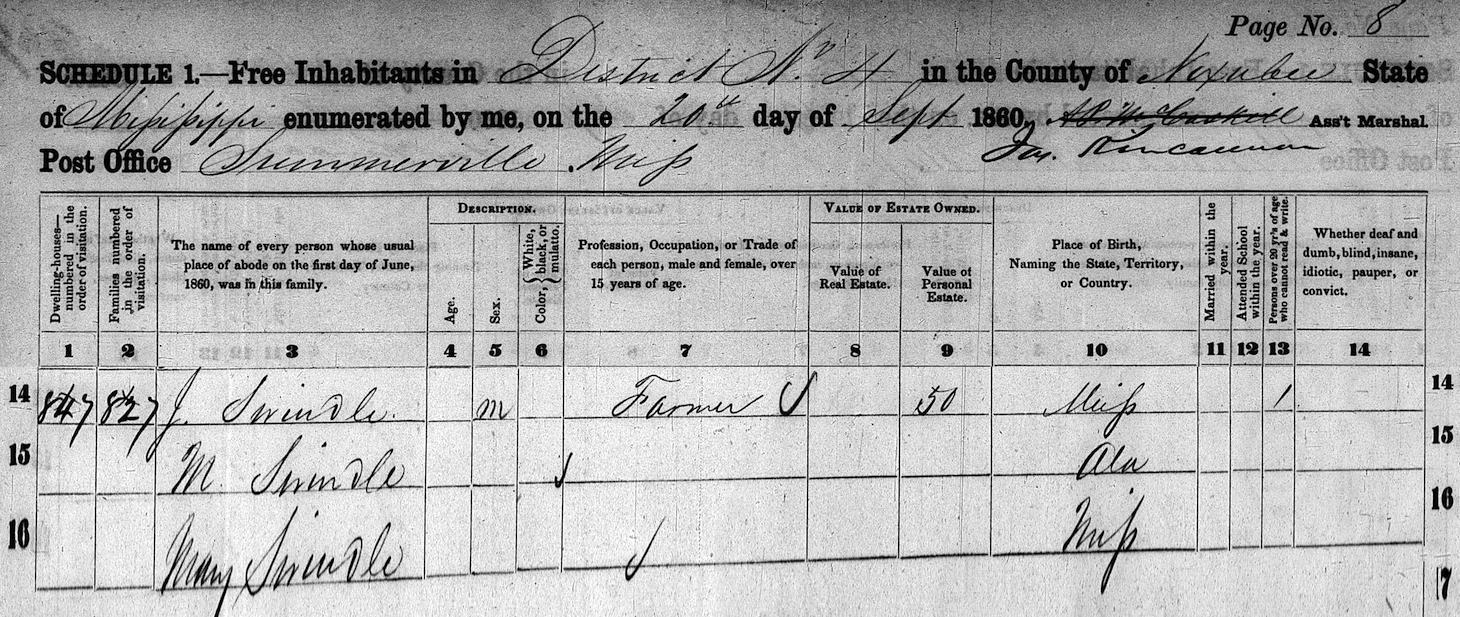 Page No. 8
SCHEDULE 1.—Free Inhabitants in District No 4 in the County of Noxubee State
of Mississippi enumerated by me, on the 20th day of Sept 1860. Ass't Marshal.
Post Office Summerville Miss Jas. Kincannon
DESCRIPTION.
VALUE OF ESTATE OWNED.
Dwelling-houses—numbered in the order of visitation.
Families numbered in the order of visitation.
The name of every person whose usual place of abode on the first day of June, 1860, was in this family.
Age.
Sex.
Color, { White, black, or mulatto.
Profession, Occupation, or Trade of each person, male and female, over 15 years of age.
Value of Real Estate.
Value of Personal Estate.
Place of Birth, Naming the State, Territory, or Country.
Married within the year.
Attended School within the year.
Persons over 20 yr's of age who cannot read & write.
Whether deaf and dumb, blind, insane, idiotic, pauper, or convict.
1 2 3 4 5 6 7 8 9 10 11 12 13 14
14 847 827 J. Swindle m Farmer 50 Miss 1 14
15 M. Swindle Ala 15
16 Mary Swindle Miss 16
17